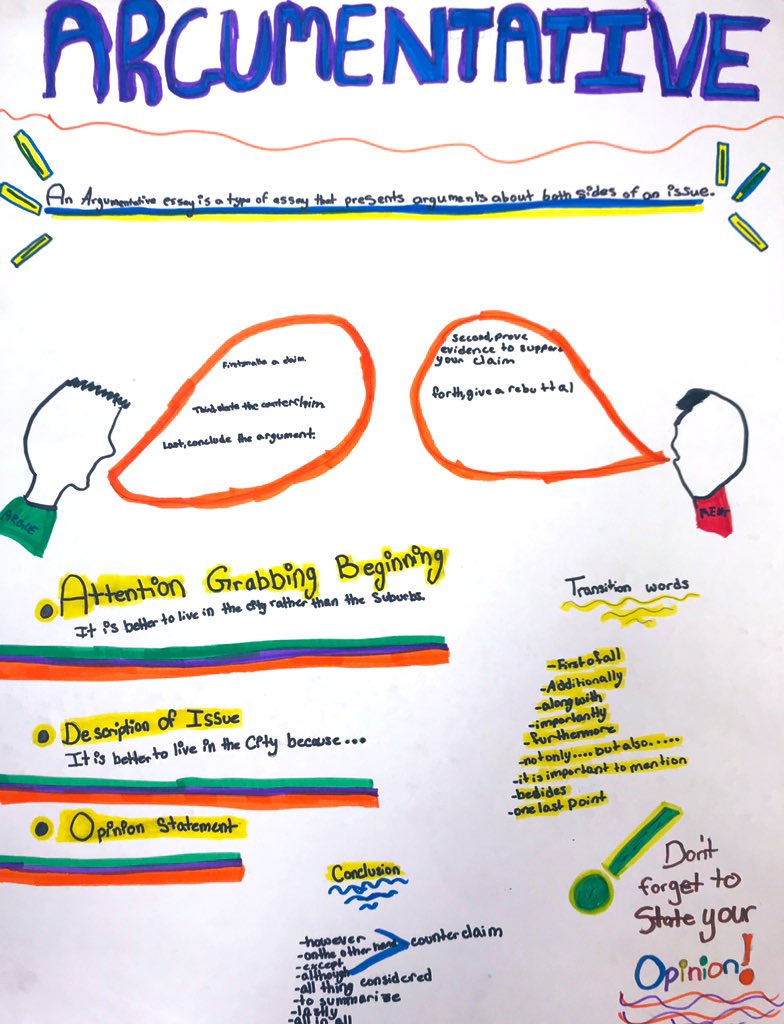 ARGUMENTATIVE
An Argumentative essay is a type of essay that presents arguments about both sides of an issue.
First,make a claim.
Third,state the counterclaim.
Last,conclude the argument.
Second,prove
evidence to support
your claim
forth,give a rebuttal
ARGUE
MENT
Attention Grabbing Beginning
It is better to live in the city rather than the suburbs.
Description of Issue
It is better to live in the City because...
Opinion Statement
Transition words
-First of all
-Additionally
-along with
-importantly
-furthermore
-not only.... but also.....
-it is important to mention
-besides
-one last point
Don't
forget to
State your
Opinion!
Conclusion
-however
-on the other hand
-except
-although
counterclaim
-all thing considered
-to summarize
-lastly
-all in all